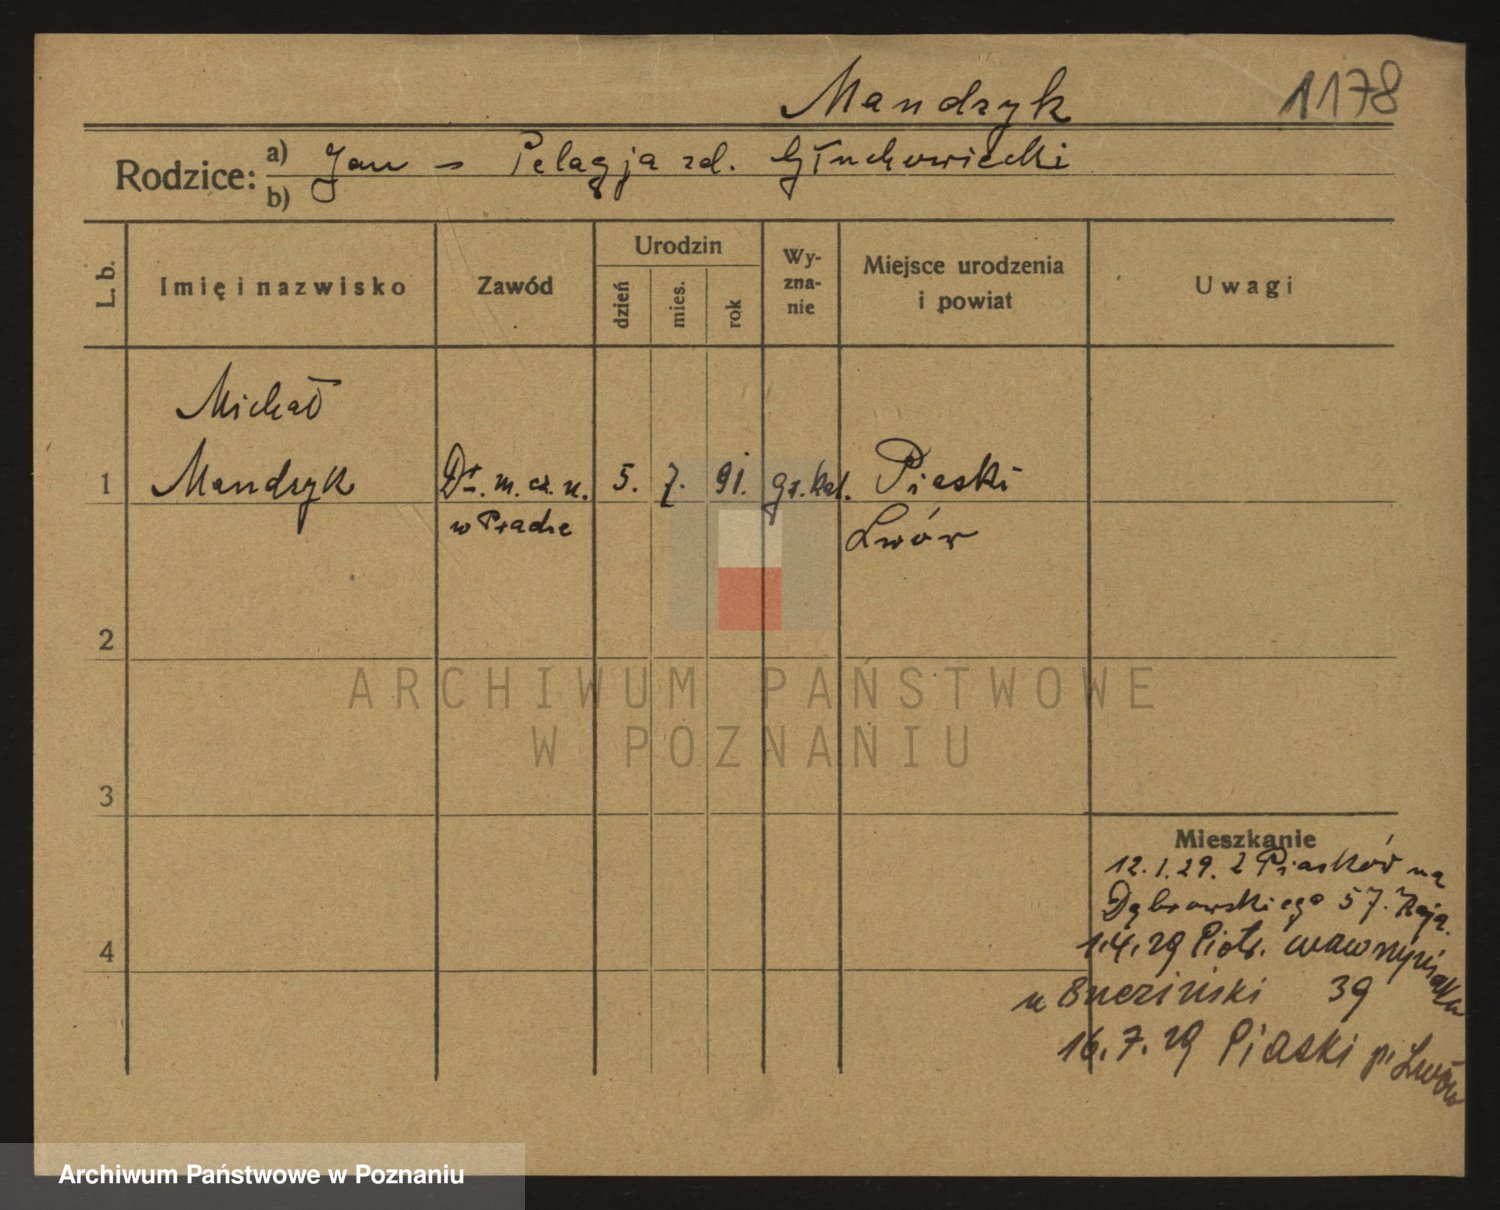 Mandryk 1178
Rodzice: a) Jan – Pelagja zd. Głuchowiecki
b)
L. b. Imię i nazwisko Zawód Urodzin dzień mies. rok Wy-zna-nie Miejsce urodzenia i powiat Uwagi
Michał
1 Mandryk Dr. m. cz. u. 5. 7. 91. gr. kat. Piaski
w Pradze Lwów
2
3
Mieszkanie
12.1.29. z Piasków na
Dąbrowskiego 57.
4 1.4.29 Piotr. Wawrzyniaka
u 39
16.7.29 Piaski p. Lwów
ARCHIWUM PAŃSTWOWE
W POZNANIU
Archiwum Państwowe w Poznaniu